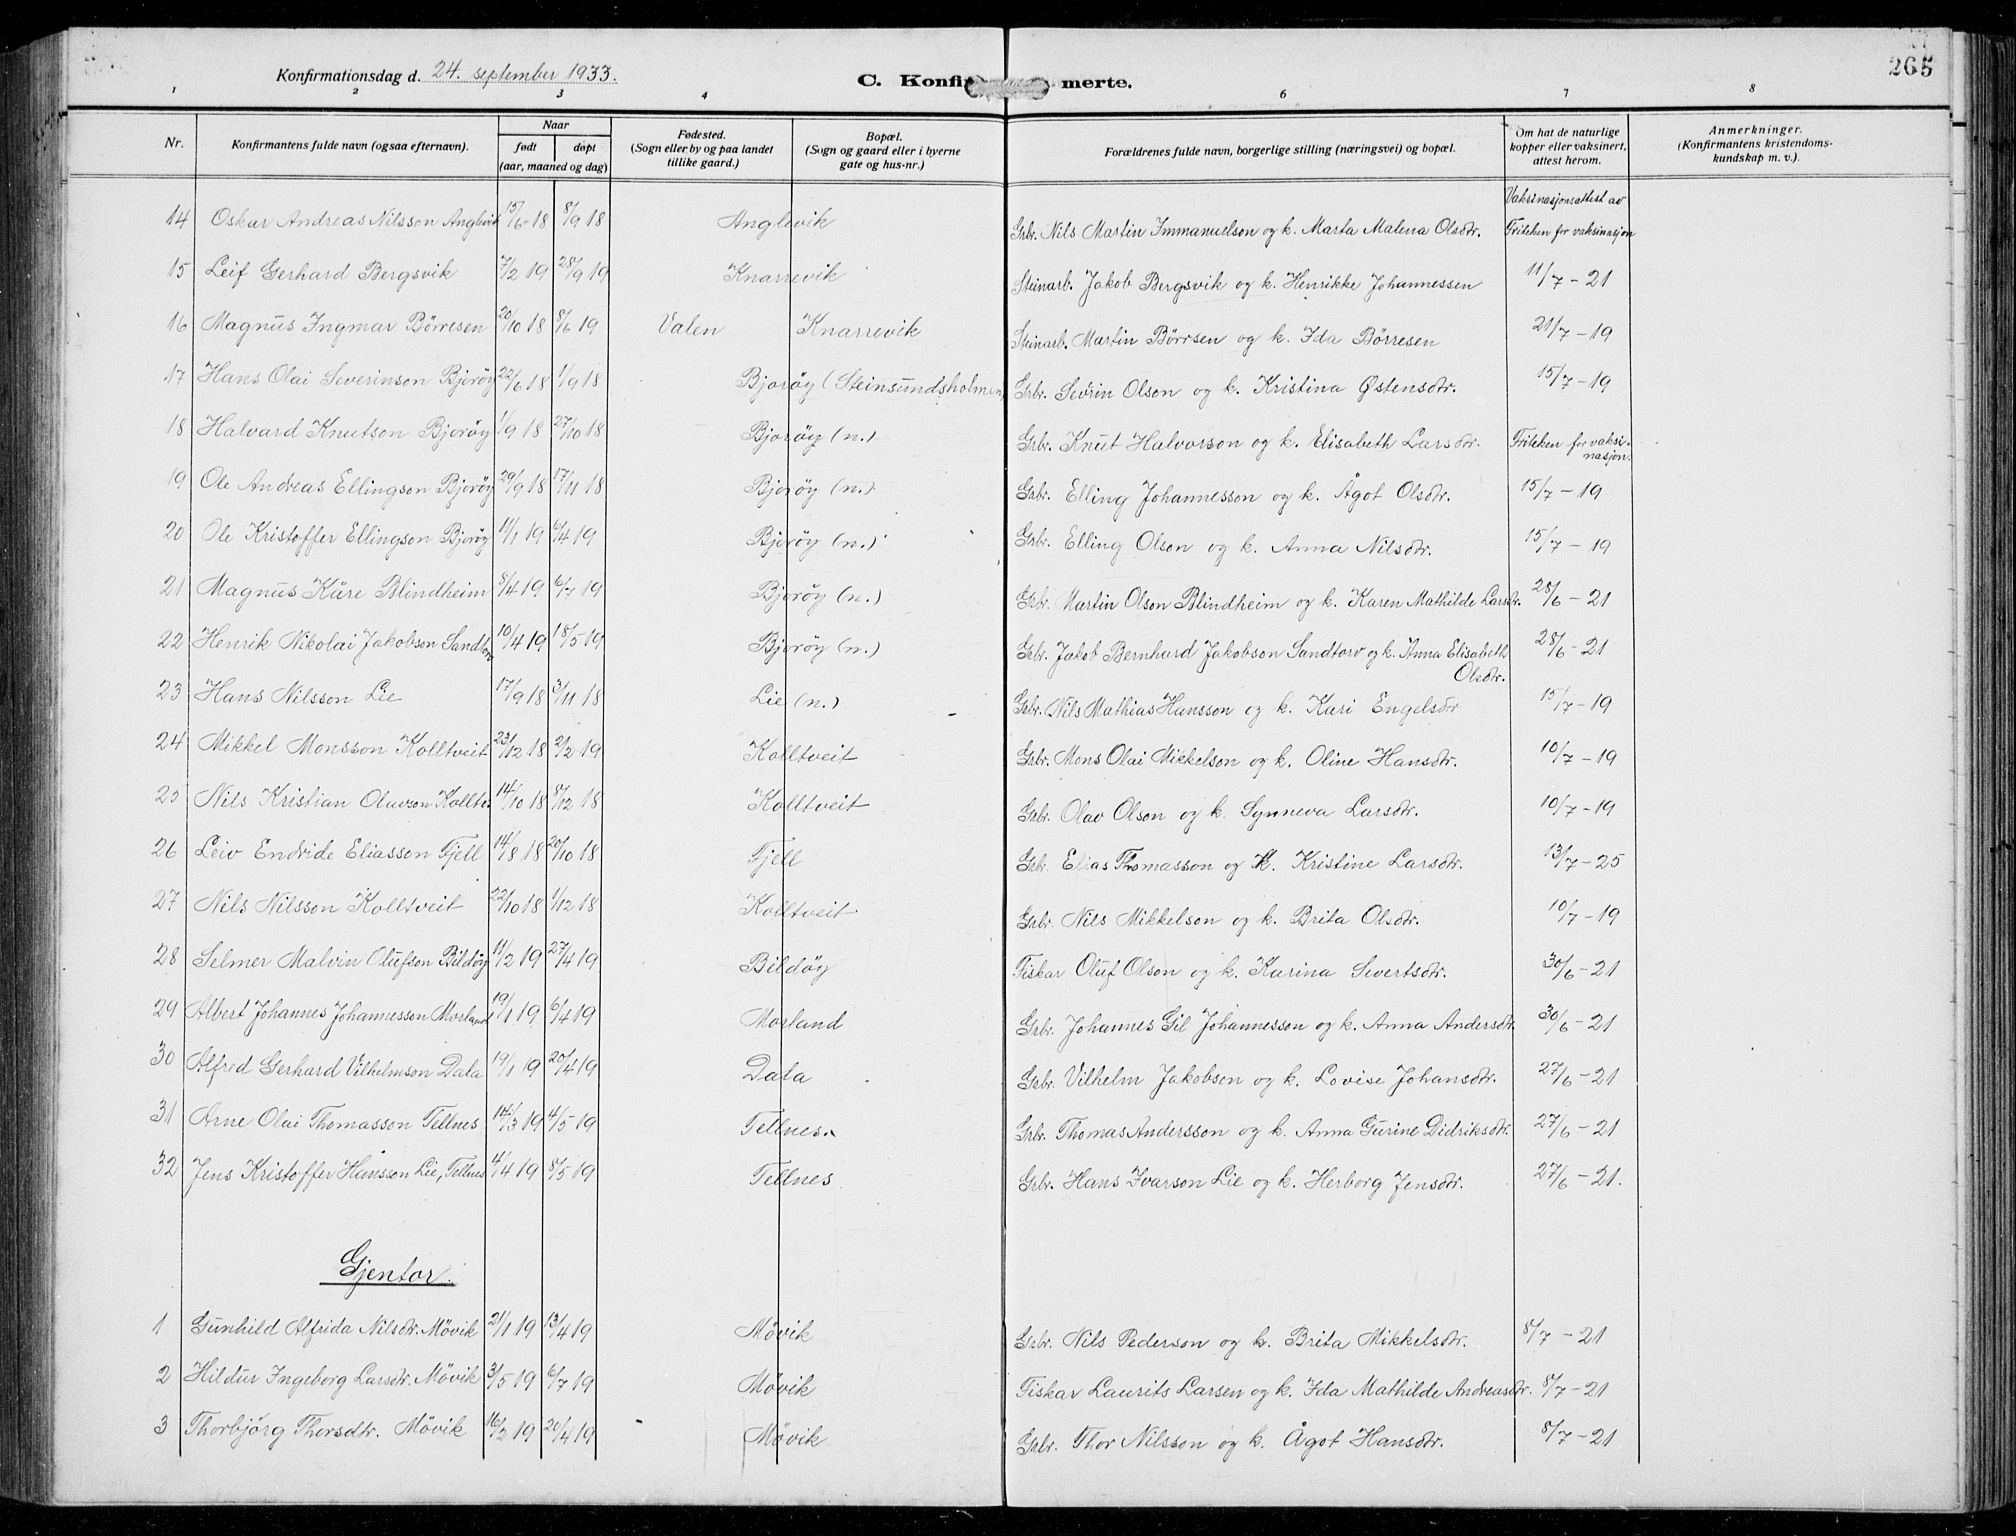 265
Konfirmationsdag d. 24. september 1933.
C. Konfir merte.
1 2 3 4 6 7 8
Nr.
Konfirmantens fulde navn (ogsaa efternavn).
Naar
født døpt
(aar, maaned og dag)
Fødested.
(Sogn eller by og paa landet
tillike gaard.)
Bopæl.
(Sogn og gaard eller i byerne
gate og hus-nr.)
Forældrenes fulde navn, borgerlige stilling (næringsvei) og bopæl.
Om hat de naturlige
kopper eller vaksinert,
attest herom.
Anmerkninger.
(Konfirmantens kristendoms-
kundskap m. v.).
Vaksinasjonsattest av
14 Oskar Andreas Nilsson Anglevik 15/6-18 8/9 18 Anglevik Gbr. Nils Martin Immanuelson og k. Marta Malena Olsdtr. Friteken for vaksinasjon
15 Leif Gerhard Bergsvik 7/2 19 28/9 19 Knarrevik Steinarb. Jakob Bergsvik og k. Henrikke Johannessen 11/7-21
16 Magnus Ingmar Børresen 20/10 18 8/6 19 Valen Knarrevik Steinarb. Martin Börrsen og k. Ida Börresen 21/7-19
17 Hans Olai Severinson Bjorøy 22/6 18 1/9 18 Bjorøy (Steinsundsholmen) Gbr. Sevrin Olson og k. Kristina Østensdtr. 15/7-19
18 Halvard Knutson Bjorøy 1/9 18 27/10 18 Bjorøy (n.) Gbr. Knut Halvorson og k. Elisabeth Larsdtr. Friteken for vaksi-
nasjon.
19 Ole Andreas Ellingson Bjorøy 29/9 18 17/11 18 Bjorøy (n.) Gbr. Elling Johannesson og k. Ågot Olsdtr. 15/7-19
20 Ole Kristoffer Ellingson Bjorøy 11/1 19 6/4 19 Bjorøy (n.) Gbr. Elling Olson og k. Anna Nilsdtr. 15/7-19
21 Magnus Kåre Blindheim 8/4 19 6/7 19 Bjorøy (n.) Gbr. Martin Olson Blindheim og k. Karen Mathilde Larsdtr. 28/6-21
22 Henrik Nikolai Jakobson Sandtorv 10/4 19 18/5 19 Bjorøy (n.) Gbr. Jakob Bernhard Jakobson Sandtorv og k. Anna Elisabeth 28/6-21
Olsdtr.
23 Hans Nilsson Lie 17/9 18 3/11 18 Lie (n.) Gbr. Nils Mathias Hansson og k. Kari Engelsdtr 15/7-19
24 Mikkel Monsson Kolltveit 23/12 18 2/2 19 Kolltveit Gbr. Mons Olai Mikkelson og k. Oline Hansdtr. 10/7-19
25 Nils Kristian Olavson Kolltv. 14/10 18 8/12 18 Kolltveit Gbr. Olav Olson og k. Synneva Larsdtr. 10/7-19
26 Leiv Endride Eliasson Fjell 14/8 18 20/10 18 Fjell Gbr. Elias Thomasson og k. Kristine Larsdtr. 13/7-25
27 Nils Nilsson Kolltveit 22/10 18 1/12 18 Kolltveit Gbr. Nils Mikkelson og k. Brita Olsdtr. 10/7-19
28 Selmer Malvin Olufson Bildøy 11/2 19 27/4 19 Bildøy Fiskar Oluf Olson og k. Karina Sivertsdtr. 30/6-21
29 Albert Johannes Johannesson Morland 19/1 19 6/4 19 Morland Gbr. Johannes Gil Johannesson og k. Anna Andersdtr. 30/6-21
30 Alfred Gerhard Vilhelmson Dala 19/1 19 20/4 19 Dala Gbr. Vilhelm Jakobson og k. Lovise Johansdtr. 27/6-21
31 Arne Olai Thomasson Tellnes 14/3 19 4/5 19 Tellnes. Gbr. Thomas Andersson og k. Anna Gurine Didriksdtr. 27/6-21
32 Jens Kristoffer Hansson Lie, Tellnes 4/4 19 8/5 19 Tellnes. Gbr. Hans Ivarson Lie og k. Herborg Jensdtr. 27/6-21.
Gjentor.
1 Gunhild Alfrida Nilsdtr. Møvik 21/1 19 13/4 19 Møvik Gbr. Nils Pederson og k. Brita Mikkelsdtr. 8/7-21
2 Hildur Ingeborg Larsdtr. Møvik 3/5 19 6/7 19 Møvik Fiskar Laurits Larsen og k. Ida Mathilde Andreasdtr. 8/7-21
3 Thorbjörg Thorsdtr. Møvik 16/2 19 20/4 19 Møvik Gbr. Thor Nilsson og k. Ågot Hansdtr. 8/7-21